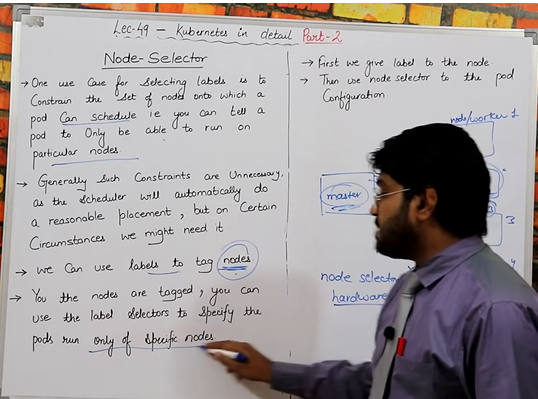 Lec-49 - Kubernetes in detail Part-2
Node-Selector
→ One use case for selecting labels is to
Constrain the set of nodes onto which a
pod Can schedule ie you can tell a
pod to Only be able to run on
particular nodes.
→ Generally such Constraints are Unnecessary,
as the Scheduler will automatically do
a reasonable placement, but on Certain
Circumstances we might need it
→ we Can use labels to tag nodes.
→ You the nodes are tagged, you can
use the label selectors to specify the
pods run only of specific nodes.
→ First we give label to the node.
→ Then use node selector to the pod
Configuration.
node/worker 1
master
3
4
node selector
hardware